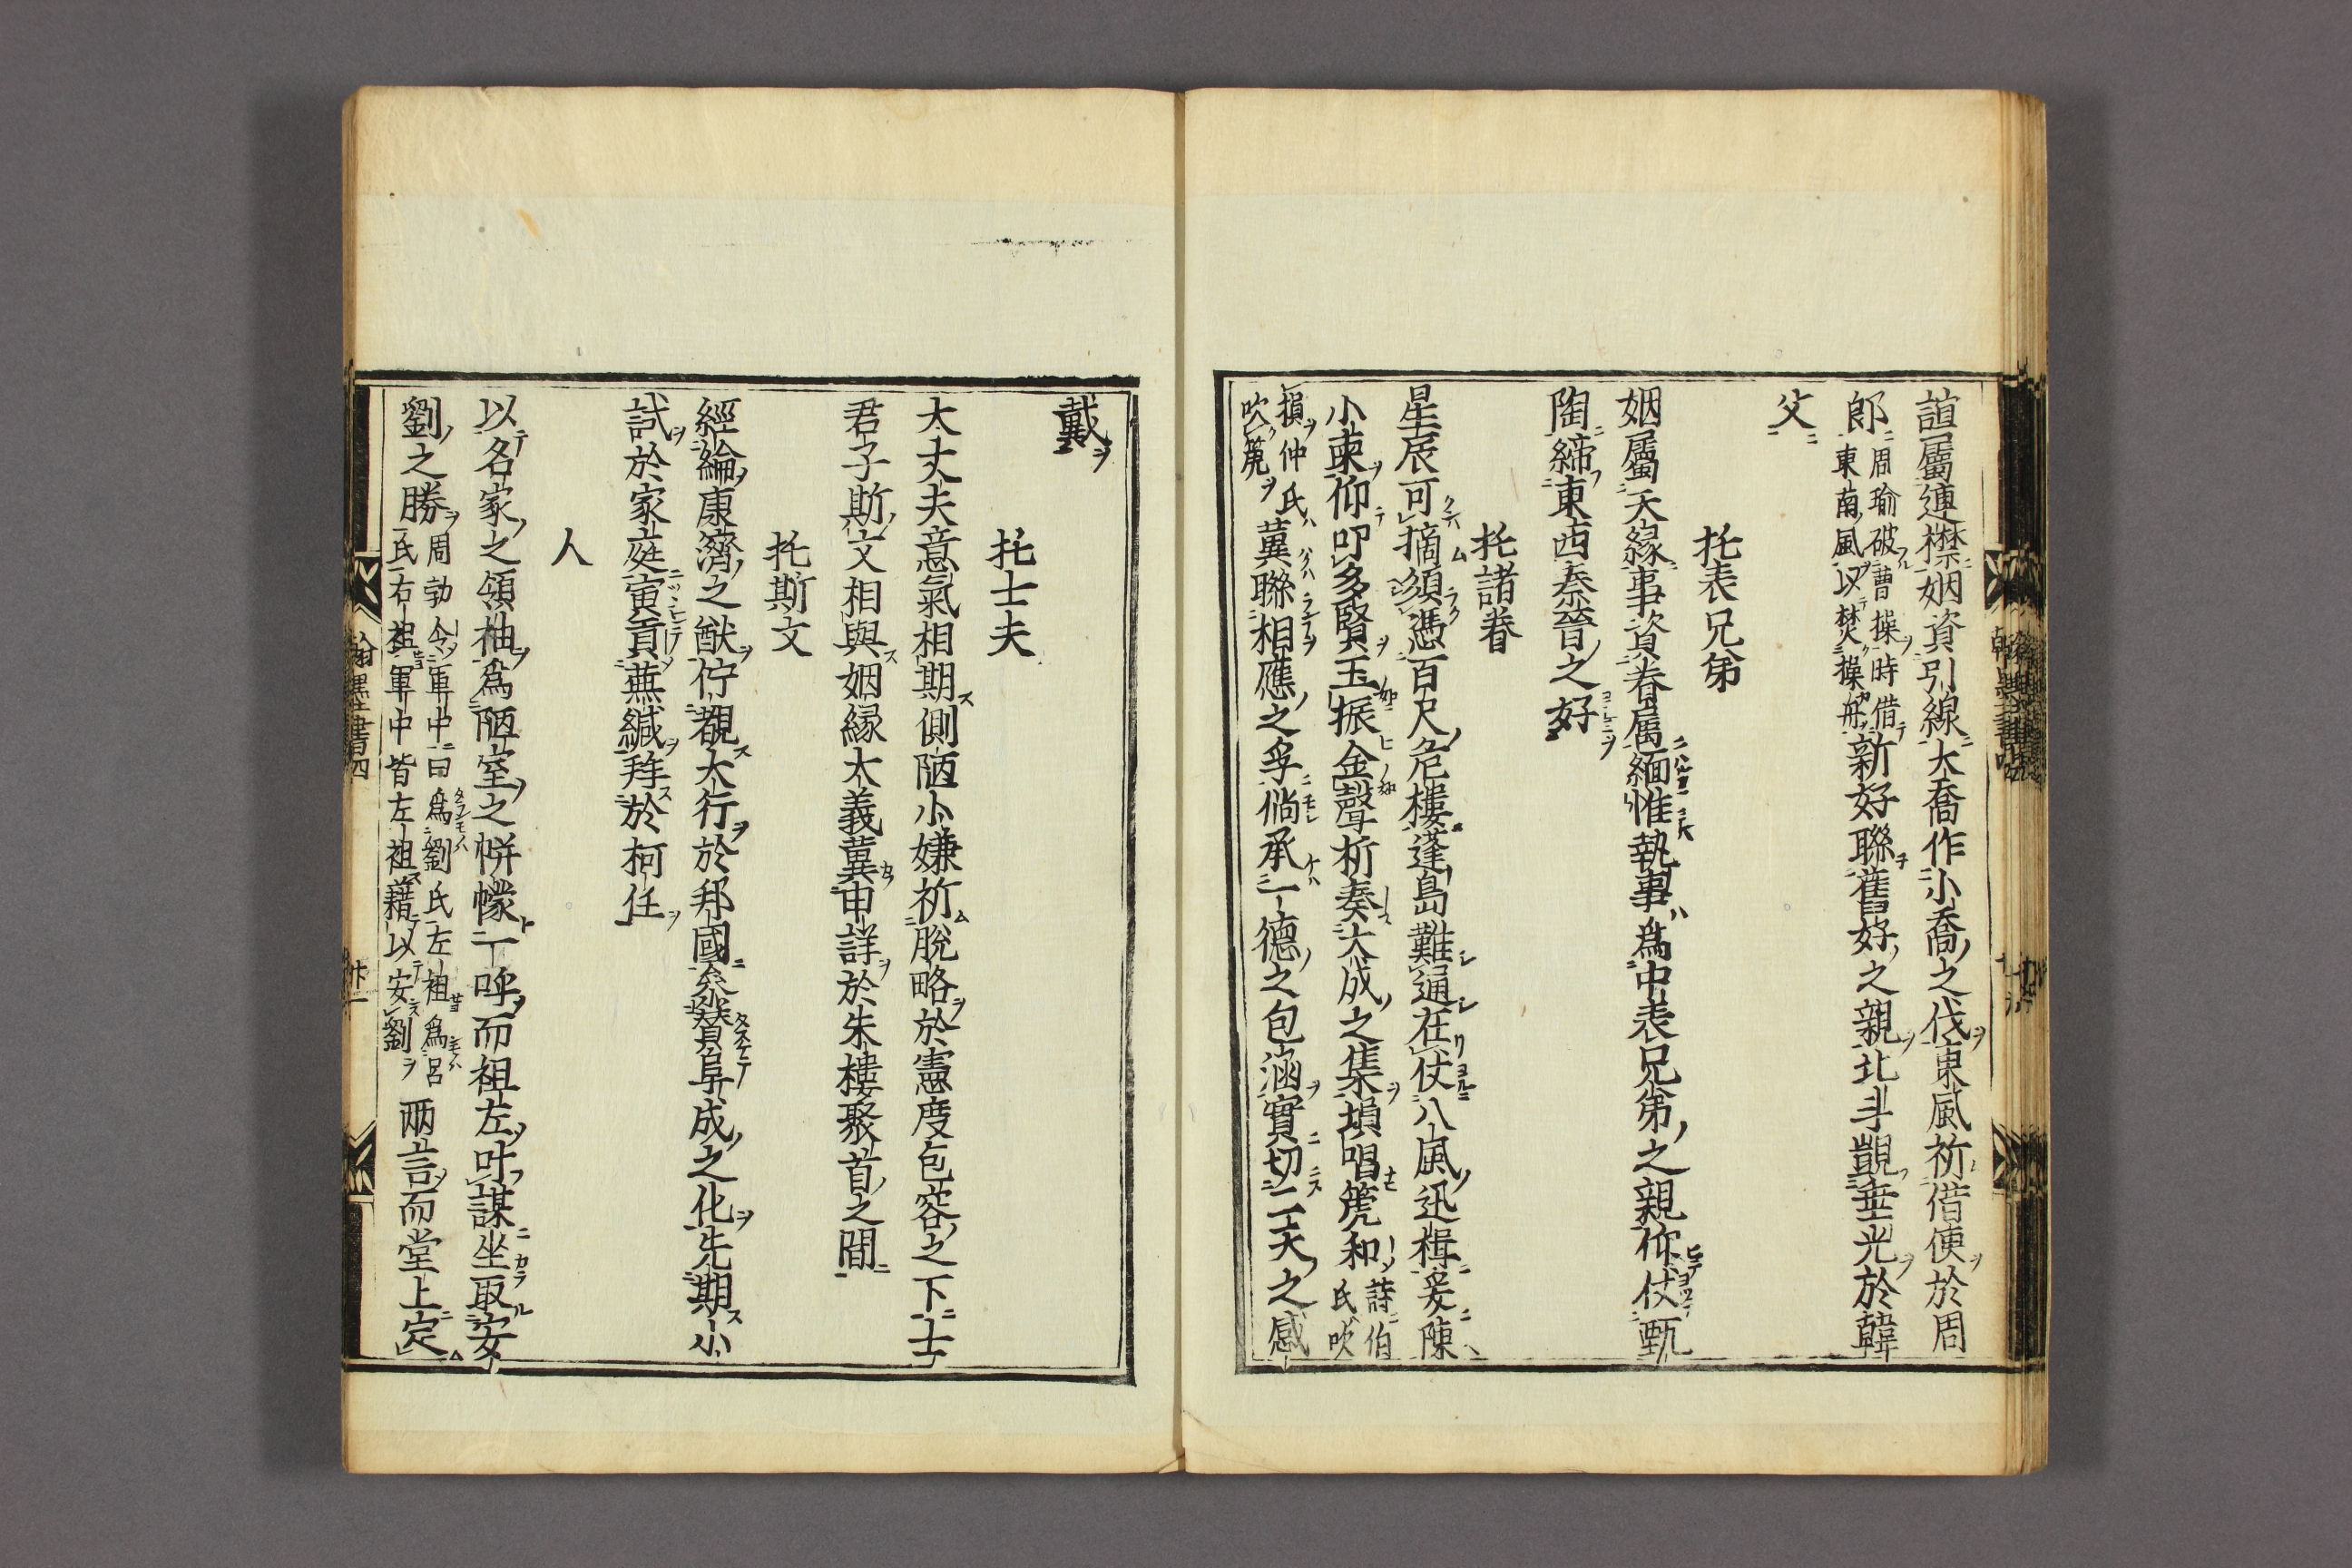 誼屬連襟姻資引線大喬作小喬之伐東風祈借使於周
郎周瑜破曹操時借東南風以焚操舟新好聯舊好之親北斗覬垂光於韓
父
托表兄弟
姻屬天緣事資眷屬緬惟執事為中表兄弟之親仰仗甄
陶締東西秦晉之好
托諸眷
星辰可摘須憑百尺危樓蓬島難通在仗八風迅楫爰陳
小柬仰叩多賢玉振金聲祈奏大成之集塤唱篪和詩伯氏吹
損仲氏吹篪冀聯相應之孚倘承一德之包涵實切二天之感
戴
托士夫
大丈夫意氣相期側陋小嫌祈脫略於憲度包容之下士
君子斯文相與姻緣大義冀申詳於朱樓聚首之間
托斯文
經綸康濟之猷佇覩大行於邦國叅賛阜成之化先期小
試於家庭寅貢蕪緘拜於柯任
人
以名家之領袖為陋室之帡幪一呼而袒左叶謀坐取安
劉之勝周勃令軍中曰為劉氏左袒為呂氏右袒軍中皆左袒藉以安劉兩言而堂上定
翰墨書四